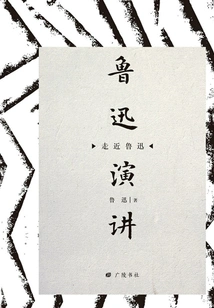 鲁迅演讲
走近鲁迅
鲁迅|著
广陵书社